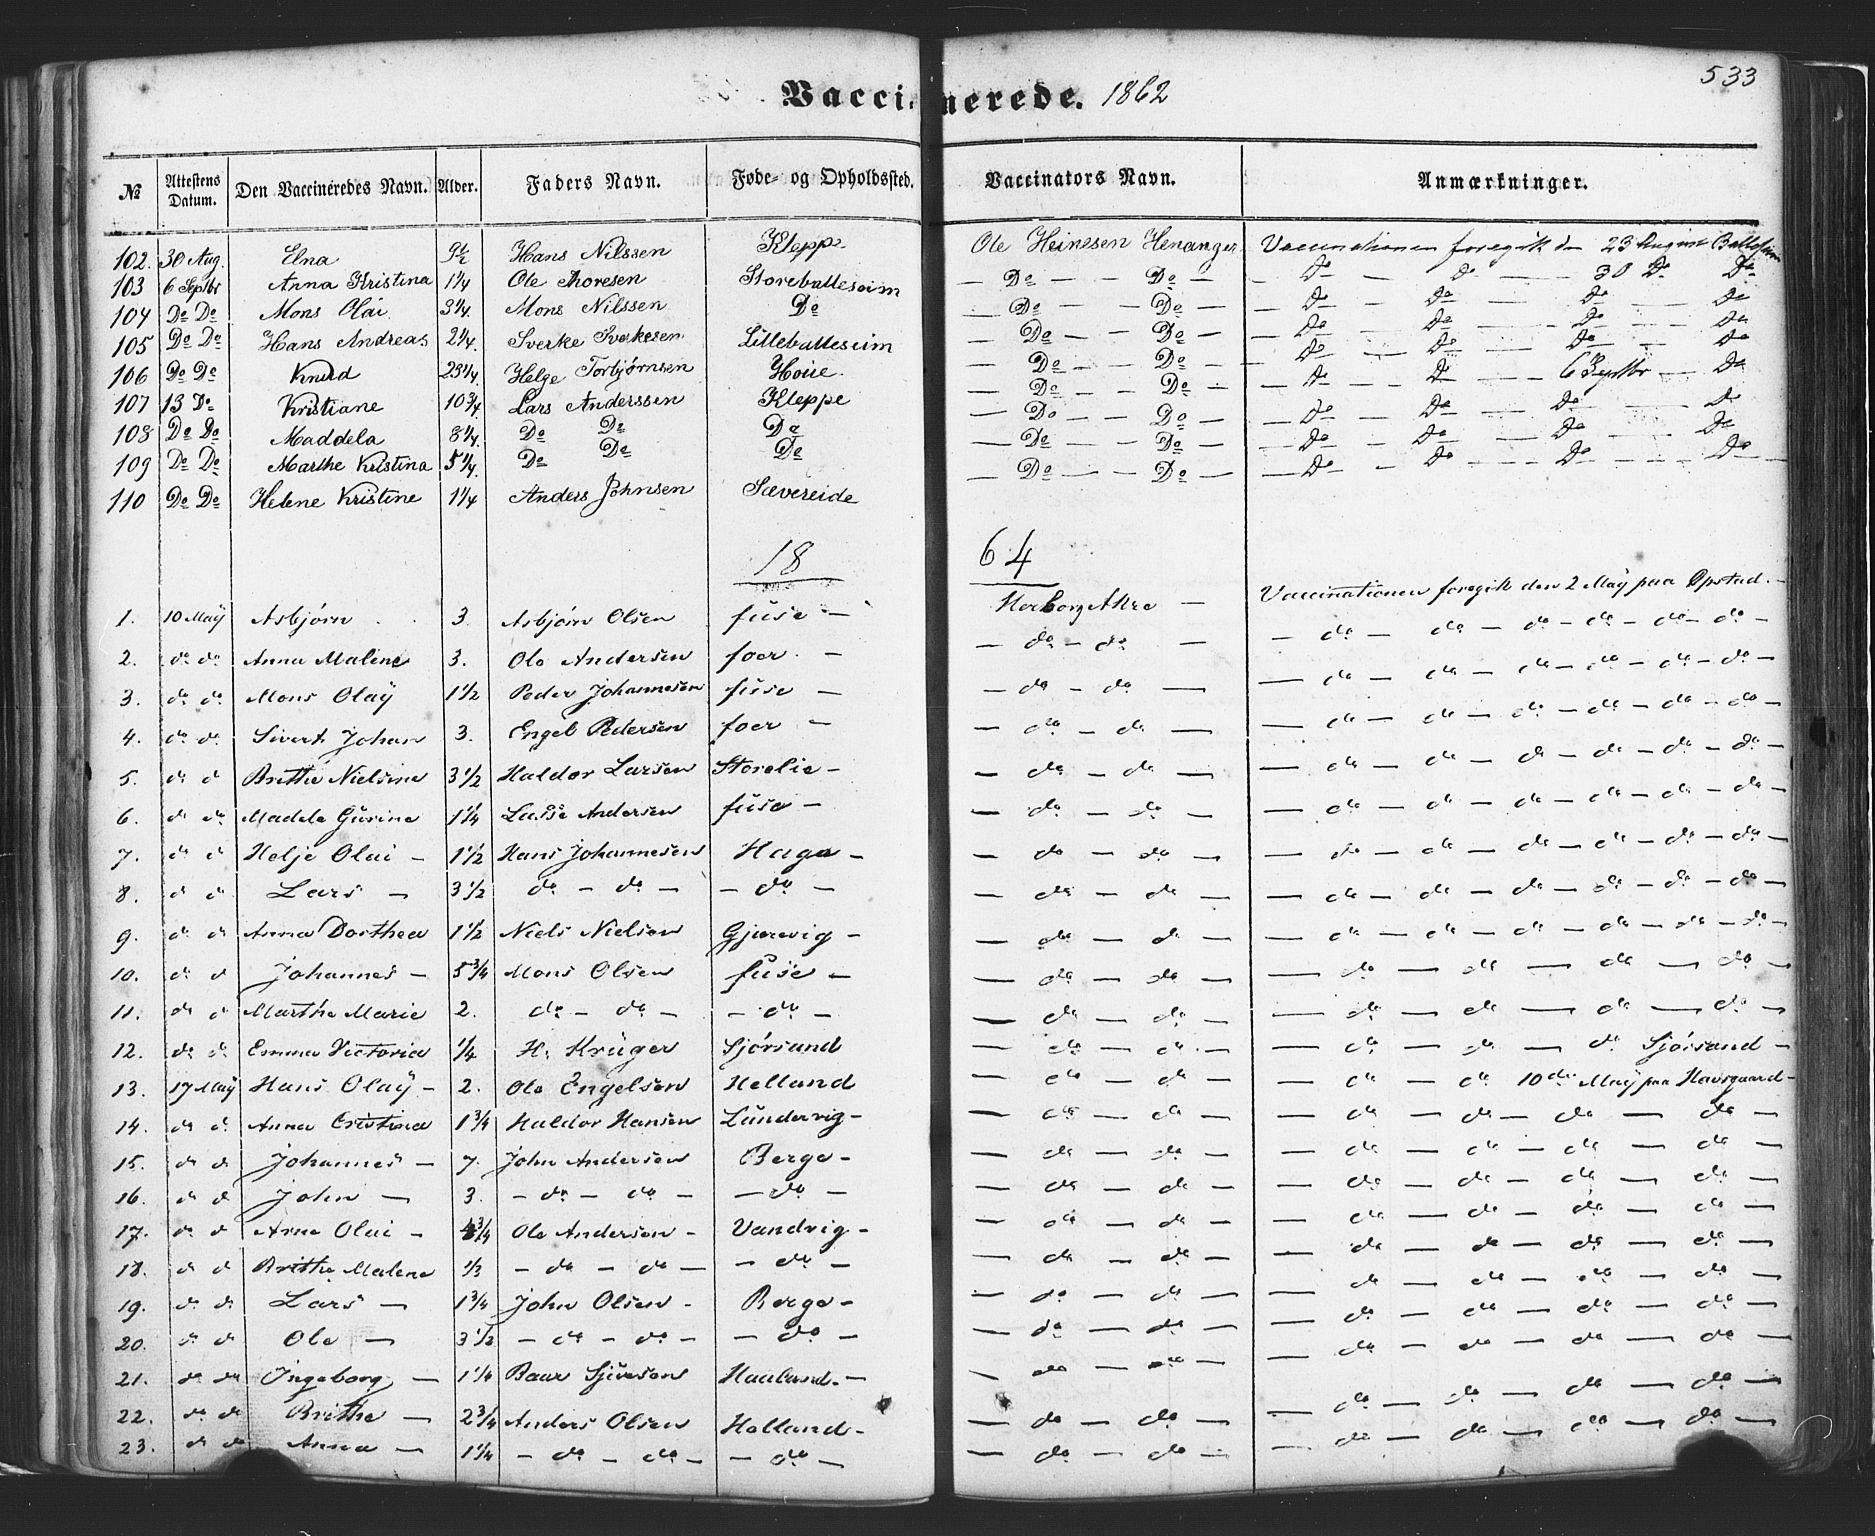 533
Vacci nerede. 1862
№ Attestens Datum. Den Vaccineredes Navn. Alder. Faders Navn. Føde- og Opholdssted. Vaccinators Navn. Anmærkninger.
102. 30 Aug. Elna 9½ Hans Nilssen Kleppe Ole Heinesen Henanger Vaccinationen foregik den 23 August
103 6 Septbr Anna Kristina 1¼ Ole Thoresen Storeballeseim — Do — Do — — Do — Do — 30 Do Do
104 Do Do Mons Olai 3¼ Mons Nilssen Do — Do — Do — — Do — Do — Do — Do
105 Do Do Hans Andreas 2¼ Sverke Sverkesen Lilleballeseim — Do — Do — — Do — Do — Do — Do
106 Do Do Knud 23¼ Helge Torbjørnsen Houe — Do — Do — — Do — Do — Do — Do
107 13 Do Kristiane 10¾ Lars Anderssen Kleppe — Do — Do — — Do — Do — 6 Septbr — Do
108 Do Do Maddela 8¼ Do Do Do — Do — Do — — Do — Do — Do — Do
109 Do Do Marthe Kristina 5¼ Do Do Do — Do — Do — — Do — Do — Do — Do
110 Do Do Helene Kristine 1¼ Anders Johnsen Sævereide — Do — Do — — Do — Do — Do — Do
18 64
1. 10 Maÿ Asbjørn 3. Asbjørn Olsen fuse — — Vaccinationen foregik den 2 Maÿ paa Opstad. —
2. do do Anna Malene 3. Ole Andersen foer — — do — do — — do — do — do — do — do — do —
3. do do Mons Olaÿ 1½ Peder Johannesen fuse — — do — do — — do — do — do — do — do — do —
4. do do Sivert Johan 3. Engel Pedersen foer — — do — do — — do — do — do — do — do — do —
5. do do Brithe Nielsine 3½ Haldor Larsen Storelie — — do — do — — do — do — do — do — do — do —
6. do do Madele Gurine 1¼ Lasse Andersen fuse — — do — do — — do — do — do — do — do — do —
7. do do Helje Olai — 1½ Hans Johannesen Hage — — do — do — — do — do — do — do — do — do —
8. do do Lars — 3½ do — do — — do — — do — do — do — do — do — do — do — do —
9. do do Anna Dorthea 1½ Niels Nielsen Gjærevig — — do — do — — do — do — do — do — do — do —
10. do do Johannes — 5¾ Mons Olsen fuse — — do — do — — do — do — do — do —
11. do do Marthe Marie 2. do — do — — do — — do — do — — do — do — do — do —
12. do do Emma Victoria ¼ H. Krüger Sjørsand — do — do — — do — do — do Sjørsand —
13. 17 Maÿ Hans Olaÿ — 2. Ole Engelsen Helland — do — do — — do — do 10de Maÿ paa Havsgaard —
14. do do Anna Cristina 1¾ Haldor Hansen Lundervig — — do — do — — do — do — do — do —
15. do do Johannes — 7. John Andersen Berge — — do — do — — do — do — do — do —
16. do do John — 3. — do — do — — do — — do — do — — do — do — do — do —
17. do do Arne Olai — ¾ Ole Andersen — Vandvig — — do — do — — do — do — do — do —
18. do do Brithe Malene ⅓ — do — do — — do — — do — do — — do — do — do — do —
19. do do Lars — 1¾ John Olsen — Berge — — do — do — — do — do — do — do —
20. do do Ole — 3½ — do — do — — do — — do — do — — do — do — do — do —
21. do do Ingeborg — 1¼ Baar Sjursen Haaland — — do — do — — do — do — do — do —
22. do do Brithe — 2¾ Anders Olsen Holland — — do — do — — do — do — do — do —
23. do do Anna — 1¼ — do — do — — do — — do — do — — do — do — do — do —